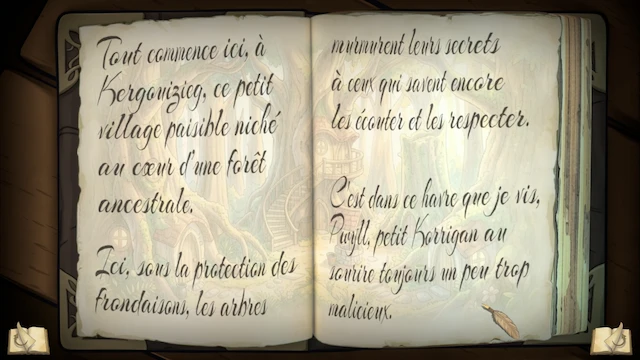 Tout commence ici, à
Kergouizieg, ce petit
village paisible niché
au cœur d'une forêt
ancestrale.
Ici, sous la protection des
frondaisons, les arbres
murmurent leurs secrets
à ceux qui savent encore
les écouter et les respecter.
C'est dans ce havre que je vis,
Pwyll, petit Korrigan au
sourire toujours un peu trop
malicieux.